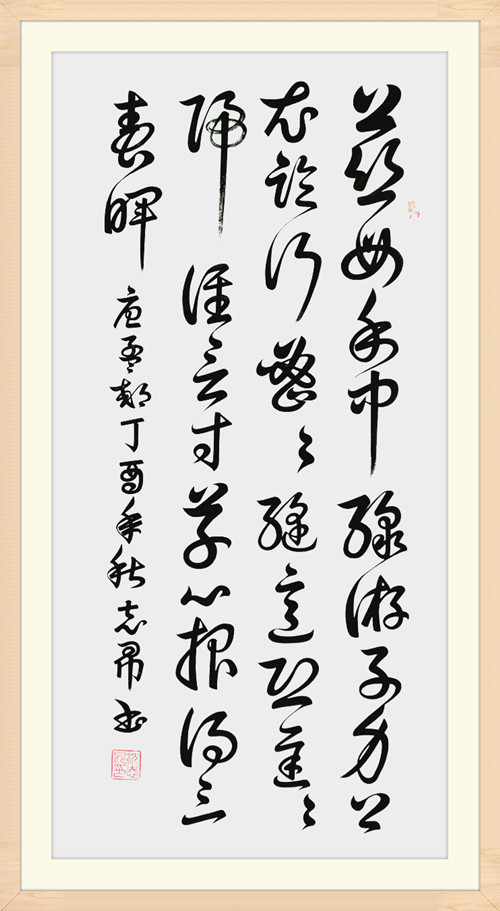 慈母手中線游子身上
衣臨行密々縫意恐遲々
歸誰言寸草心報得三
春暉 唐孟郊丁酉年秋志書